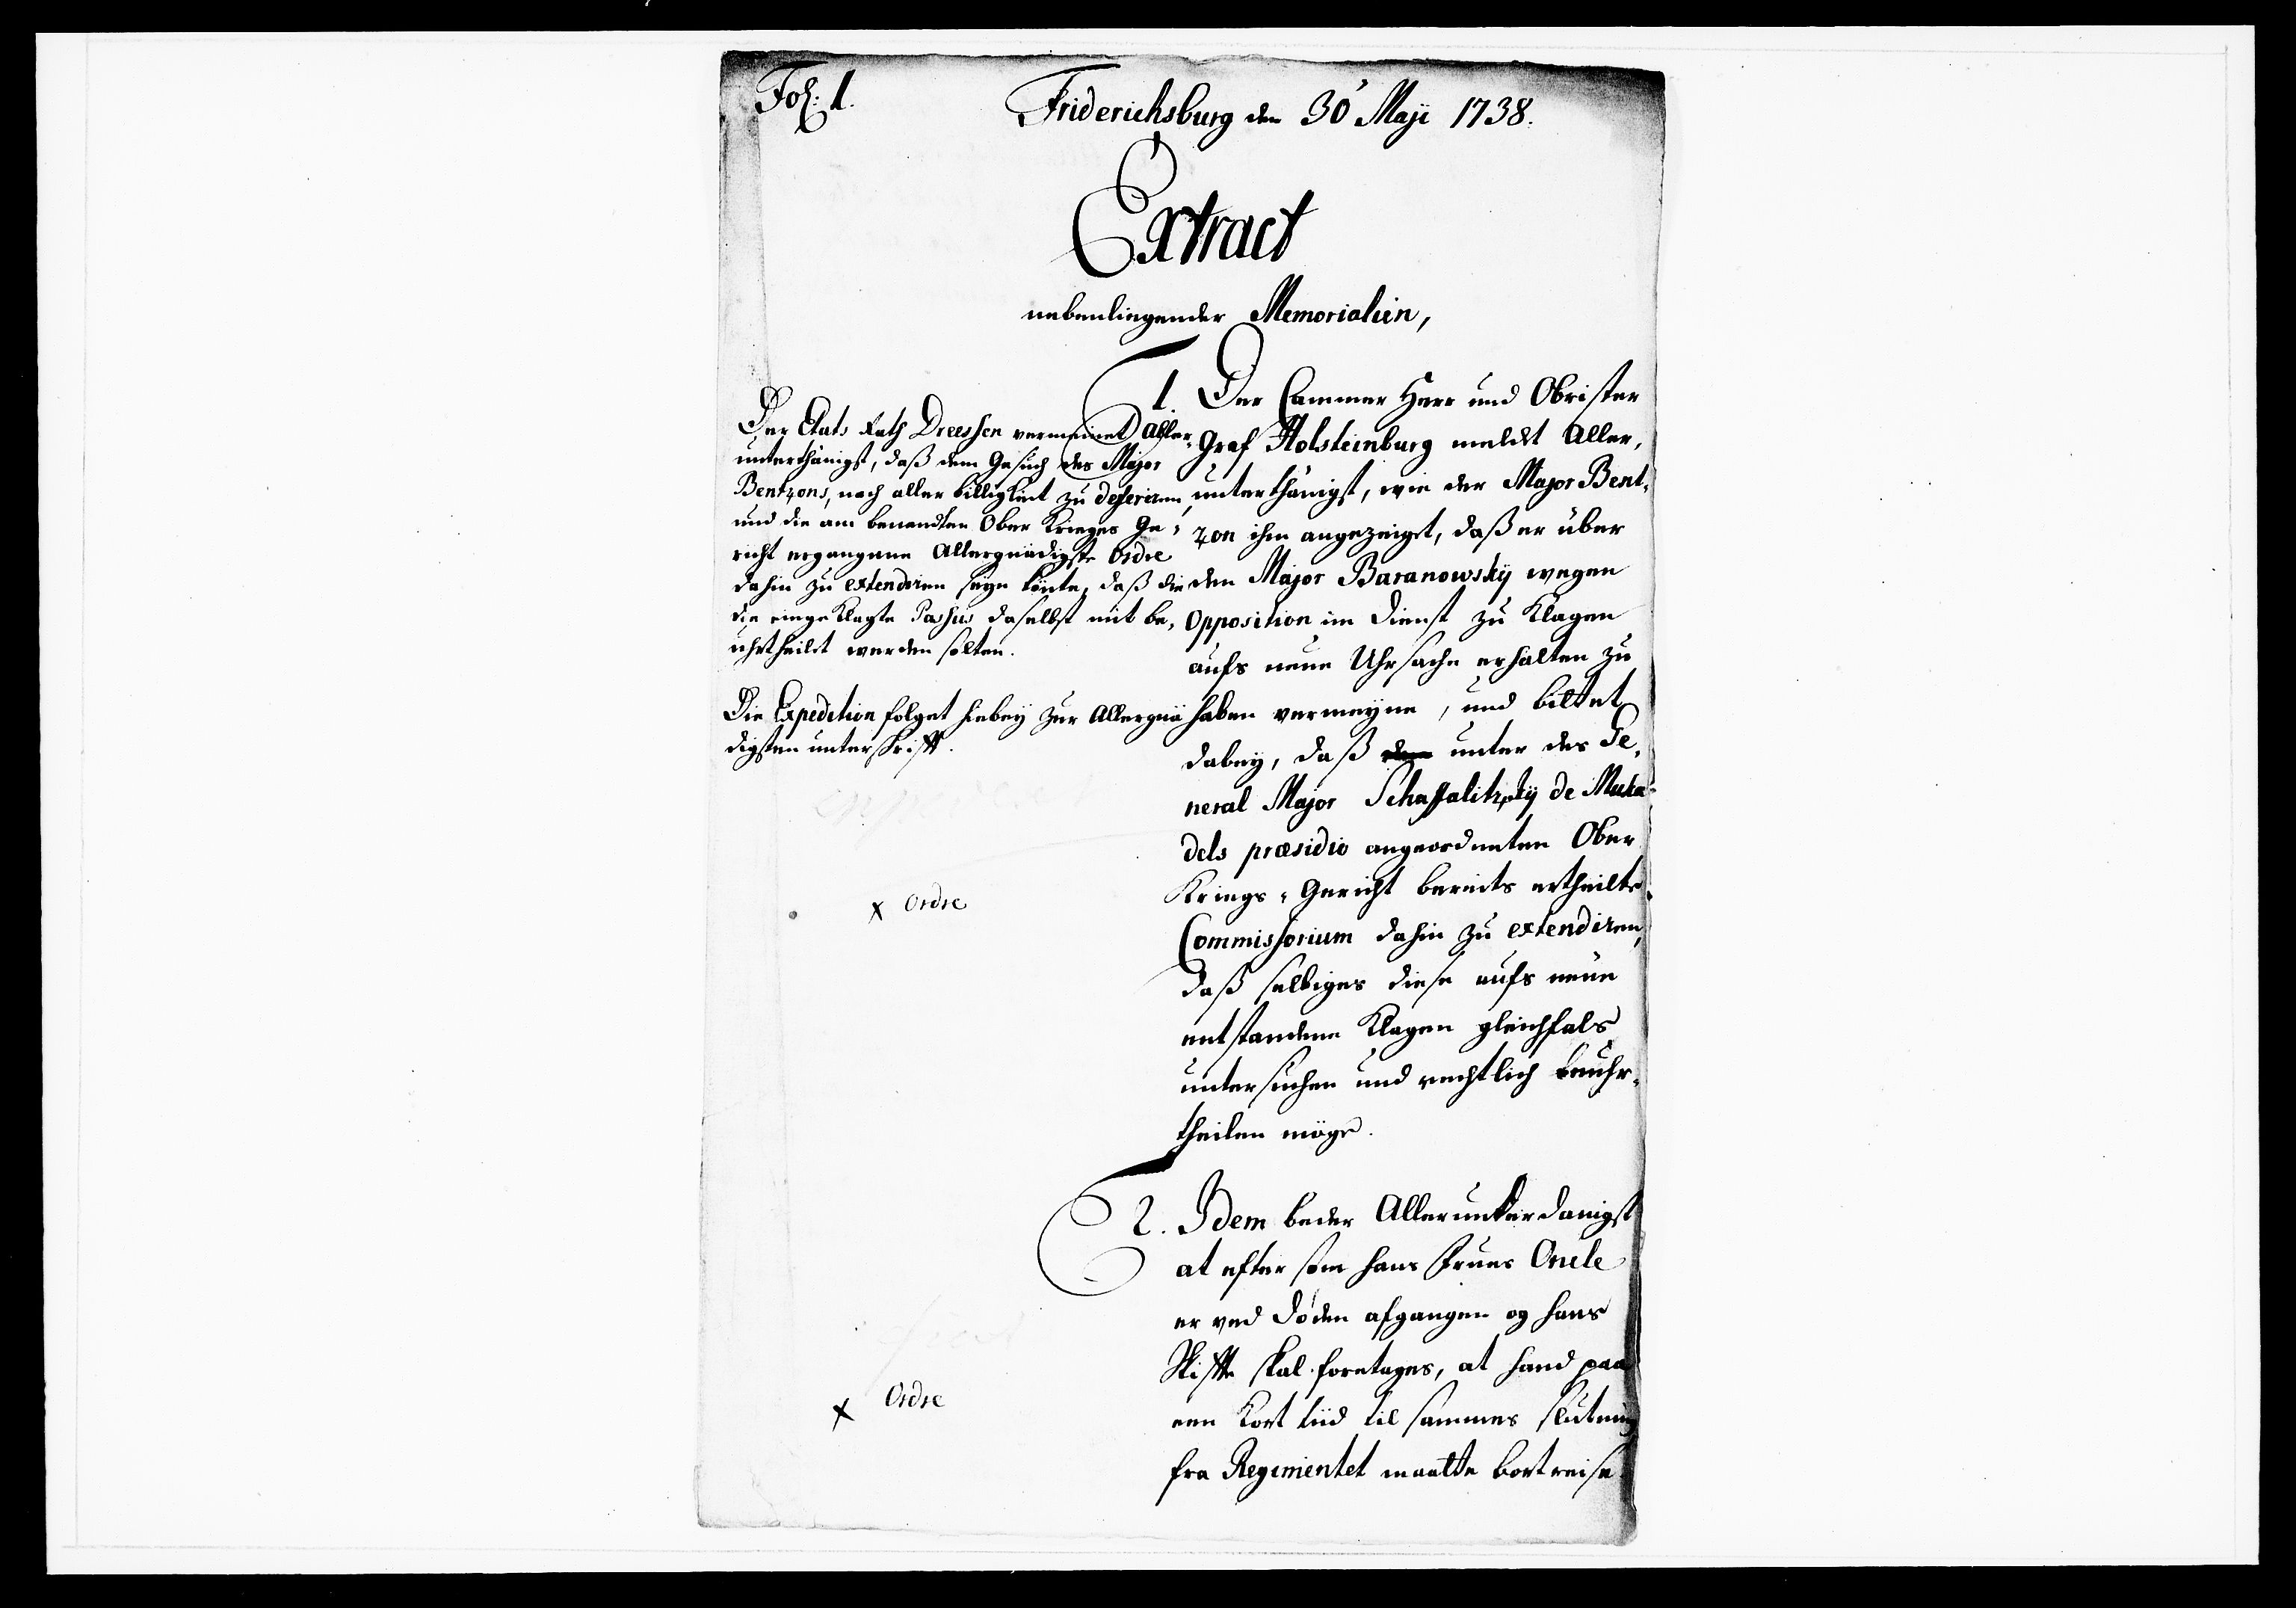 Fol: 1.
Friderichsburg den 30 Maji 1738.
Extract
nebenliegender Memorialien,
1. Der Cammer Herr und Obrister
Graf Holsteinburg meldet Aller-
unterthänigst, wie der Major Bent-
zon ihm angezeiget, daß er über
den Major Baranowskÿ wegen
Opposition im Dienst zu Klagen
aufs neue Uhrsache erhalten zu
haben vermeÿne, und bittet
dabeÿ, daß unter des Ge-
neral Major Schaffalitzkÿ de Muka-
dels præsidio angeordneten Ober
Kriegs-Gericht bereits ertheilte
Commissorium dahin zu extendiren,
daß selbiges diese aufs neue
entstandene Klagen gleichfals
untersuchen und rechtlich beuhr-
theilen möge.
Der Etats Rath Dreessen vermeinet Aller-
unterthänigst, daß dem Gesuch des Major
Bentzons, nach aller billigkeit zu deferiren,
und die am benandten Ober Krieges Ge-
richt ergangene Allergnädigste Ordre
dahin zu extendiren seÿn könte, daß die
die eingeklagte Passus daselbst mit be-
uhrtheilet werden solten.
Die Expedition folget hiebeÿ zur Allergnä
digsten unterschrifft.
x Ordre
2. Idem beder Allerunderdanigst
at efter som hans Frues Oncle
er ved Døden afgangen og hans
Skiffte skal foretages, at hand paa
een Kort tiid til sammes slutning
fra Regimentet maatte bortreise
x Ordre